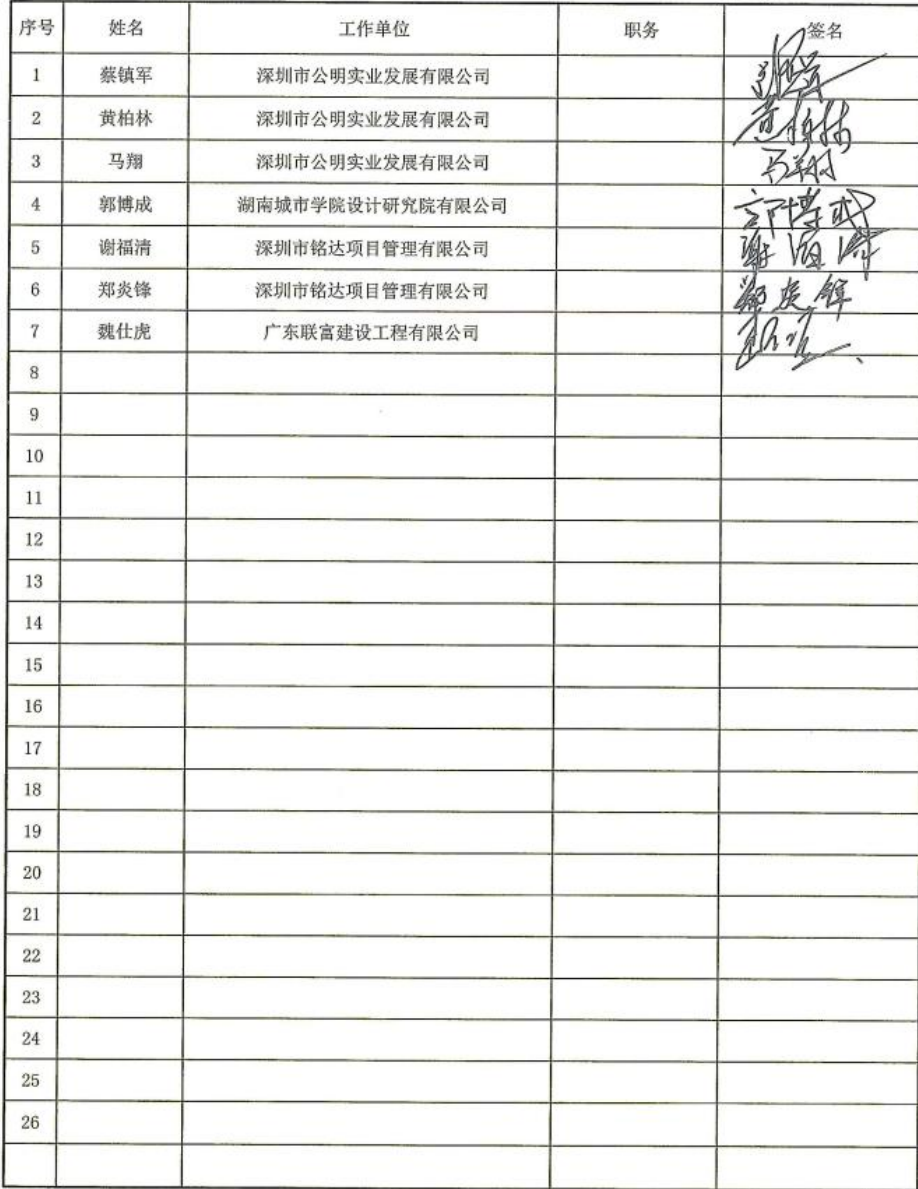 序号 姓名 工作单位 职务 签名
1 蔡镇军 深圳市公明实业发展有限公司
2 黄柏林 深圳市公明实业发展有限公司 黄柏林
3 马翔 深圳市公明实业发展有限公司 马翔
4 郭博成 湖南城市学院设计研究院有限公司 郭博成
5 谢福清 深圳市铭达项目管理有限公司
6 郑炎锋 深圳市铭达项目管理有限公司 郑炎锋
7 魏仕虎 广东联富建设工程有限公司
8
9
10
11
12
13
14
15
16
17
18
19
20
21
22
23
24
25
26